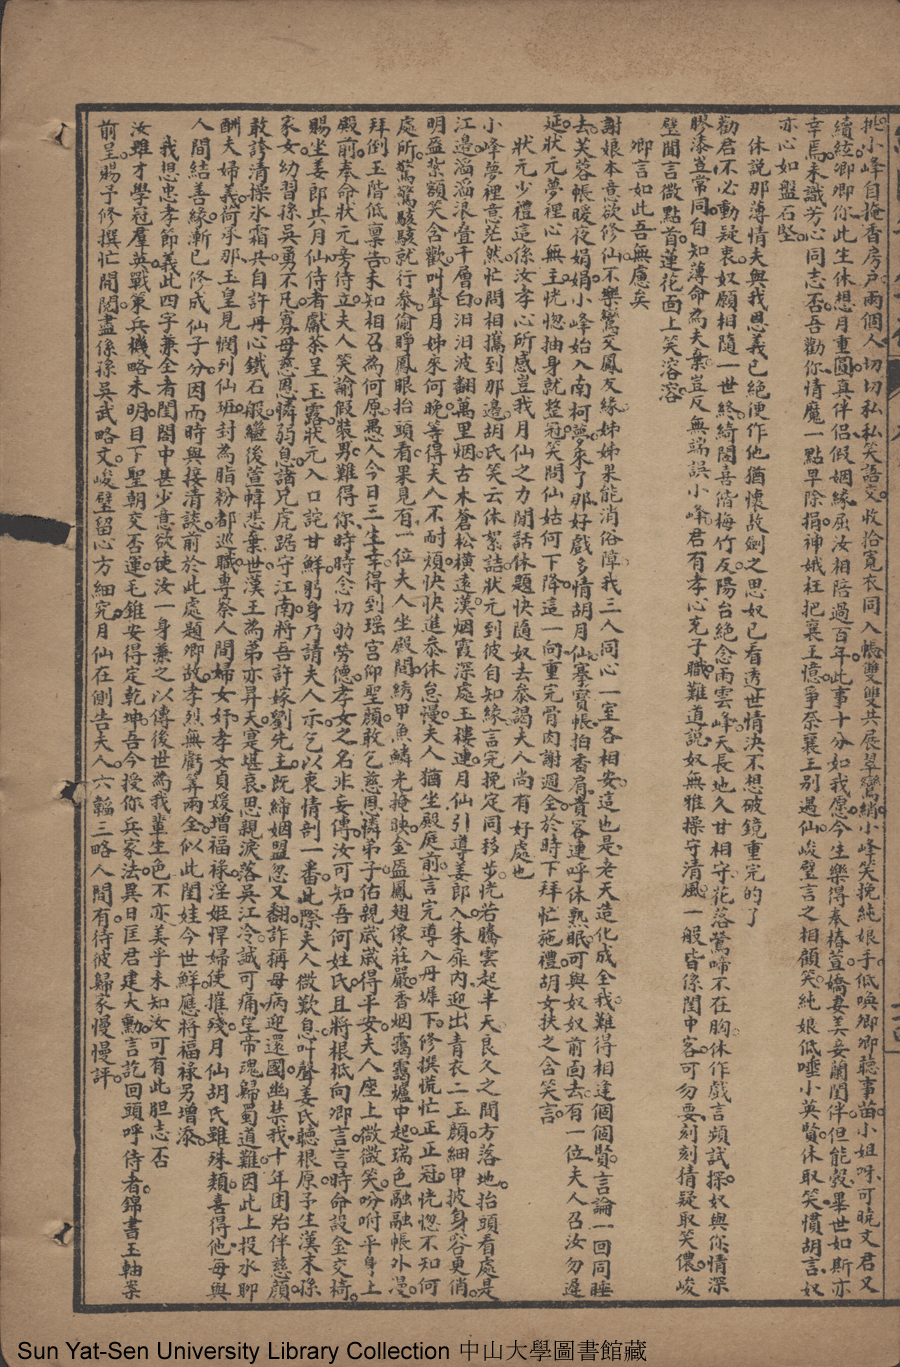 挑小峰自掩香房戶兩個人切切私私笑語文收拾寬衣同入帳雙雙共展翠鸞綃小峰笑挽純娘手低喚卿卿聽事苗小姐呀可曉文君又
續絃卿卿你此生休想月重圓真伴侶假姻緣屈汝相陪過百年此事十分如我愿今生樂得奉椿萱嬌妻美妾蘭閨伴但能彀畢世如斯亦
幸焉未識芳心同志否吾勸你情魔一點早除捐神娥枉把襄王憶爭奈襄王别遇仙峻璧言之相顧笑純娘低唾小英賢休取笑慣胡言奴
亦心如盤石堅
休說那薄情夫與我恩義已絕便作他猶懷故劍之思奴已看透世情決不想破鏡重完的了
勸君不必動疑衷奴願相隨一世終綺閣喜偕梅竹友陽台絕念雨雲峰天長地久甘相守花落鶯啼不在胸休作戲言頻試探奴與你情深
膠漆豈常同自知薄命為夫棄豈反無端誤小峰君有孝心克子職難道說奴無雅操守清風一般皆係閨中客可勿要刻刻猜疑取笑儂峻
璧聞言微點首蓮花面上笑溶溶
卿言如此吾無慮矣
謝娘本意欲修仙不樂鸞交鳳友緣姊姊果能消俗障我三人同心一室各相安這也是老天造化成全我難得相逢個個賢言論一回同睡
去芙蓉帳暖夜娟娟小峰始入南柯夢來了那好戲多情胡月仙搴寶帳拍香肩貴客連呼休熟眠可與奴奴前面去有一位夫人召汝勿遲
延狀元夢裡心無主恍惚抽身就整冠笑問仙姑何下降這一向重完骨肉謝週全於時下拜忙施禮胡女扶之含笑言
狀元少禮這係汝孝心所感豈我月仙之力閒話休題快隨奴去叅謁夫人尚有好處也
小峰夢裡意茫然忙問相攜到那邊胡氏笑云休絮詰狀元到彼自知緣言完挽定同移步恍若騰雲起半天良久之間方落地抬頭看處是
江邊滔滔浪疊千層白汩汩波翻萬里烟古木蒼松橫遠漢烟霞深處玉樓連月仙引導姜郎入朱扉內迎出青衣二玉顏細甲披身容更俏
明盔紮額笑含歡叫聲月姊來何晚等得夫人不耐煩快快進叅休怠漫夫人猶坐殿庭前言完導入丹墀下修撰慌忙正正冠恍惚不知何
處所驚驚駭駭就行叅偷睜鳳眼抬頭看果見有一位夫人坐殿間綉甲魚鱗光掩映金盔鳳翅像莊嚴香烟靄靄爐中起瑞色融融帳外漫
拜倒玉階低稟告未知相召為何原愚人今日三生幸得到瑶宫仰聖顏敢乞慈恩憐弟子佑親歲歲得平安夫人座上微微笑吩咐平身上
殿前奉命狀元旁侍立夫人笑諭假裝男難得你時時念切劬勞德孝女之名非妄傳汝可知吾何姓氏且將根柢向卿言言時命設金交椅
賜坐姜郎共月仙侍者獻茶呈玉露狀元入口詫甘鮮躬身乃請夫人示乞以衷情剖一番此際夫人微歎息叫聲姜氏聽根原予生漢末孫
家女幼習孫吳勇不凡寡母慈恩憐弱息諸兄虎踞守江南將吾許嫁劉先主既締姻盟忽又翻詐稱母病迎還國幽禁我十年困殆伴慈顏
敢誇清操氷霜共自許丹心鐵石般繼後萱幃悲棄世漢王為弟亦昇天寔堪哀思親淚落吳江冷誠可痛望帝魂歸蜀道難因此上投水聊
酬夫婦義荷承那玉皇見憫列仙班封為脂粉都巡職專察人間婦女奸孝女貞媛增福祿淫姬悍婦使摧殘月仙胡氏雖殊類喜得他每與
人間結善緣漸已修成仙子分因而時與接清談前於此處題卿故孝烈無虧算兩全似此閨娃今世鮮應將福祿另增添
我想忠孝節義此四字兼全者閨閣中甚少意欲使汝一身兼之以傳後世為我輩生色不亦美乎未知汝可有此胆志否
汝雖才學冠羣英戰策兵機略未明目下聖朝交否運毛錐安得定乾坤吾今授你兵家法異日匡君建大勳言訖回頭呼侍者錦書玉軸案
前呈賜予修撰忙開閱盡係孫吳武略文峻璧留心方細究月仙在側告夫人六韜三略人間有待彼歸家慢慢評
Sun Yat-Sen University Library Collection 中山大學圖書館藏